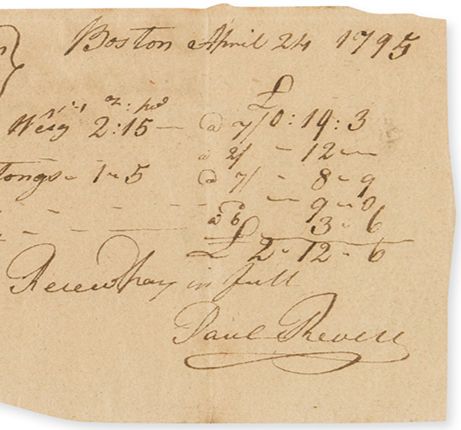 Boston April 24 1795
£
Weig 2:15 — @ 7/ 0:19:3
@ 2/ - 12 —
Tongs - 1 - 5 @ 7/ - 8 - 9
- - - - 9 - 0
- - - @ 6 3 - 6
£ 2 - 12 - 6
Receivd pay in full
Paul Revere